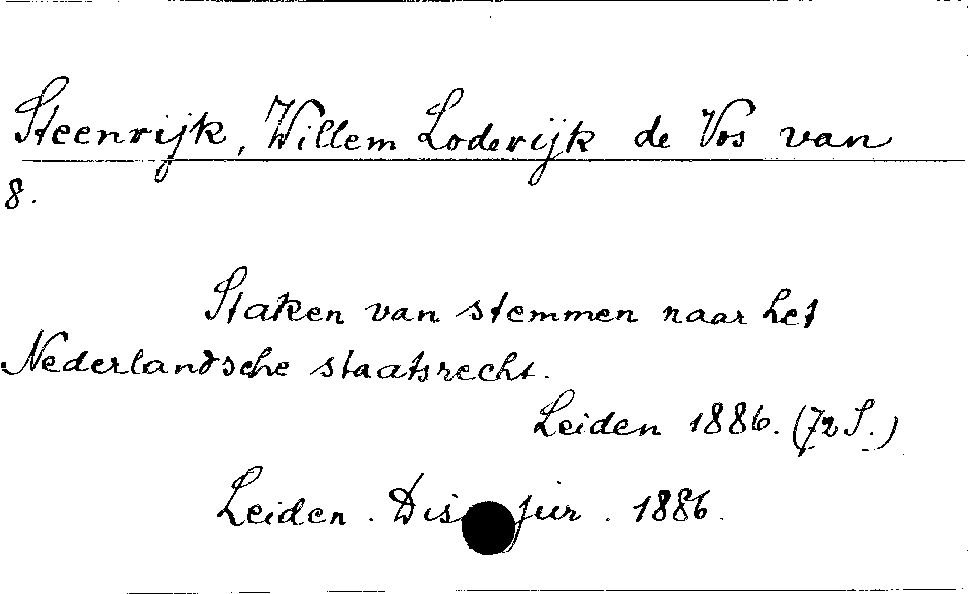 Steenrijk, Willem Loderijk de Vos van
8.
Staken van stemmen naar het
Nederlandsche staatsrecht.
Leiden 1886. (72 S.)
Leiden. Dis jur. 1886.